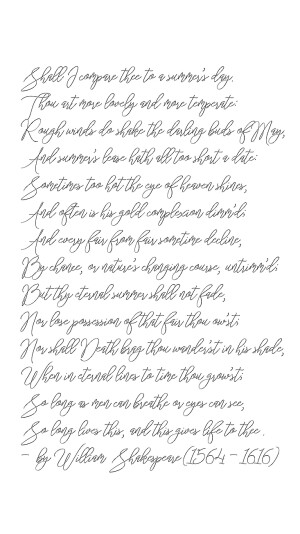 Shall I compare thee to a summer's day.
Thou art more lovely and more temperate:
Rough winds do shake the darling buds of May,
And summer's lease hath all too short a date:
Sometimes too hot the eye of heaven shines,
And often is his gold complexion dimm'd;
And every fair from fair sometime decline,
By chance, or nature's changing course, untrimm'd;
But thy eternal summer shall not fade,
Nor lose possession of that fair thou ow'st;
Nor shall Death brag thou wander'st in his shade,
When in eternal lines to time thou grow'st;
So long as men can breathe or eyes can see,
So long lives this, and this gives life to thee.
- by William Shakespeare (1564 - 1616)